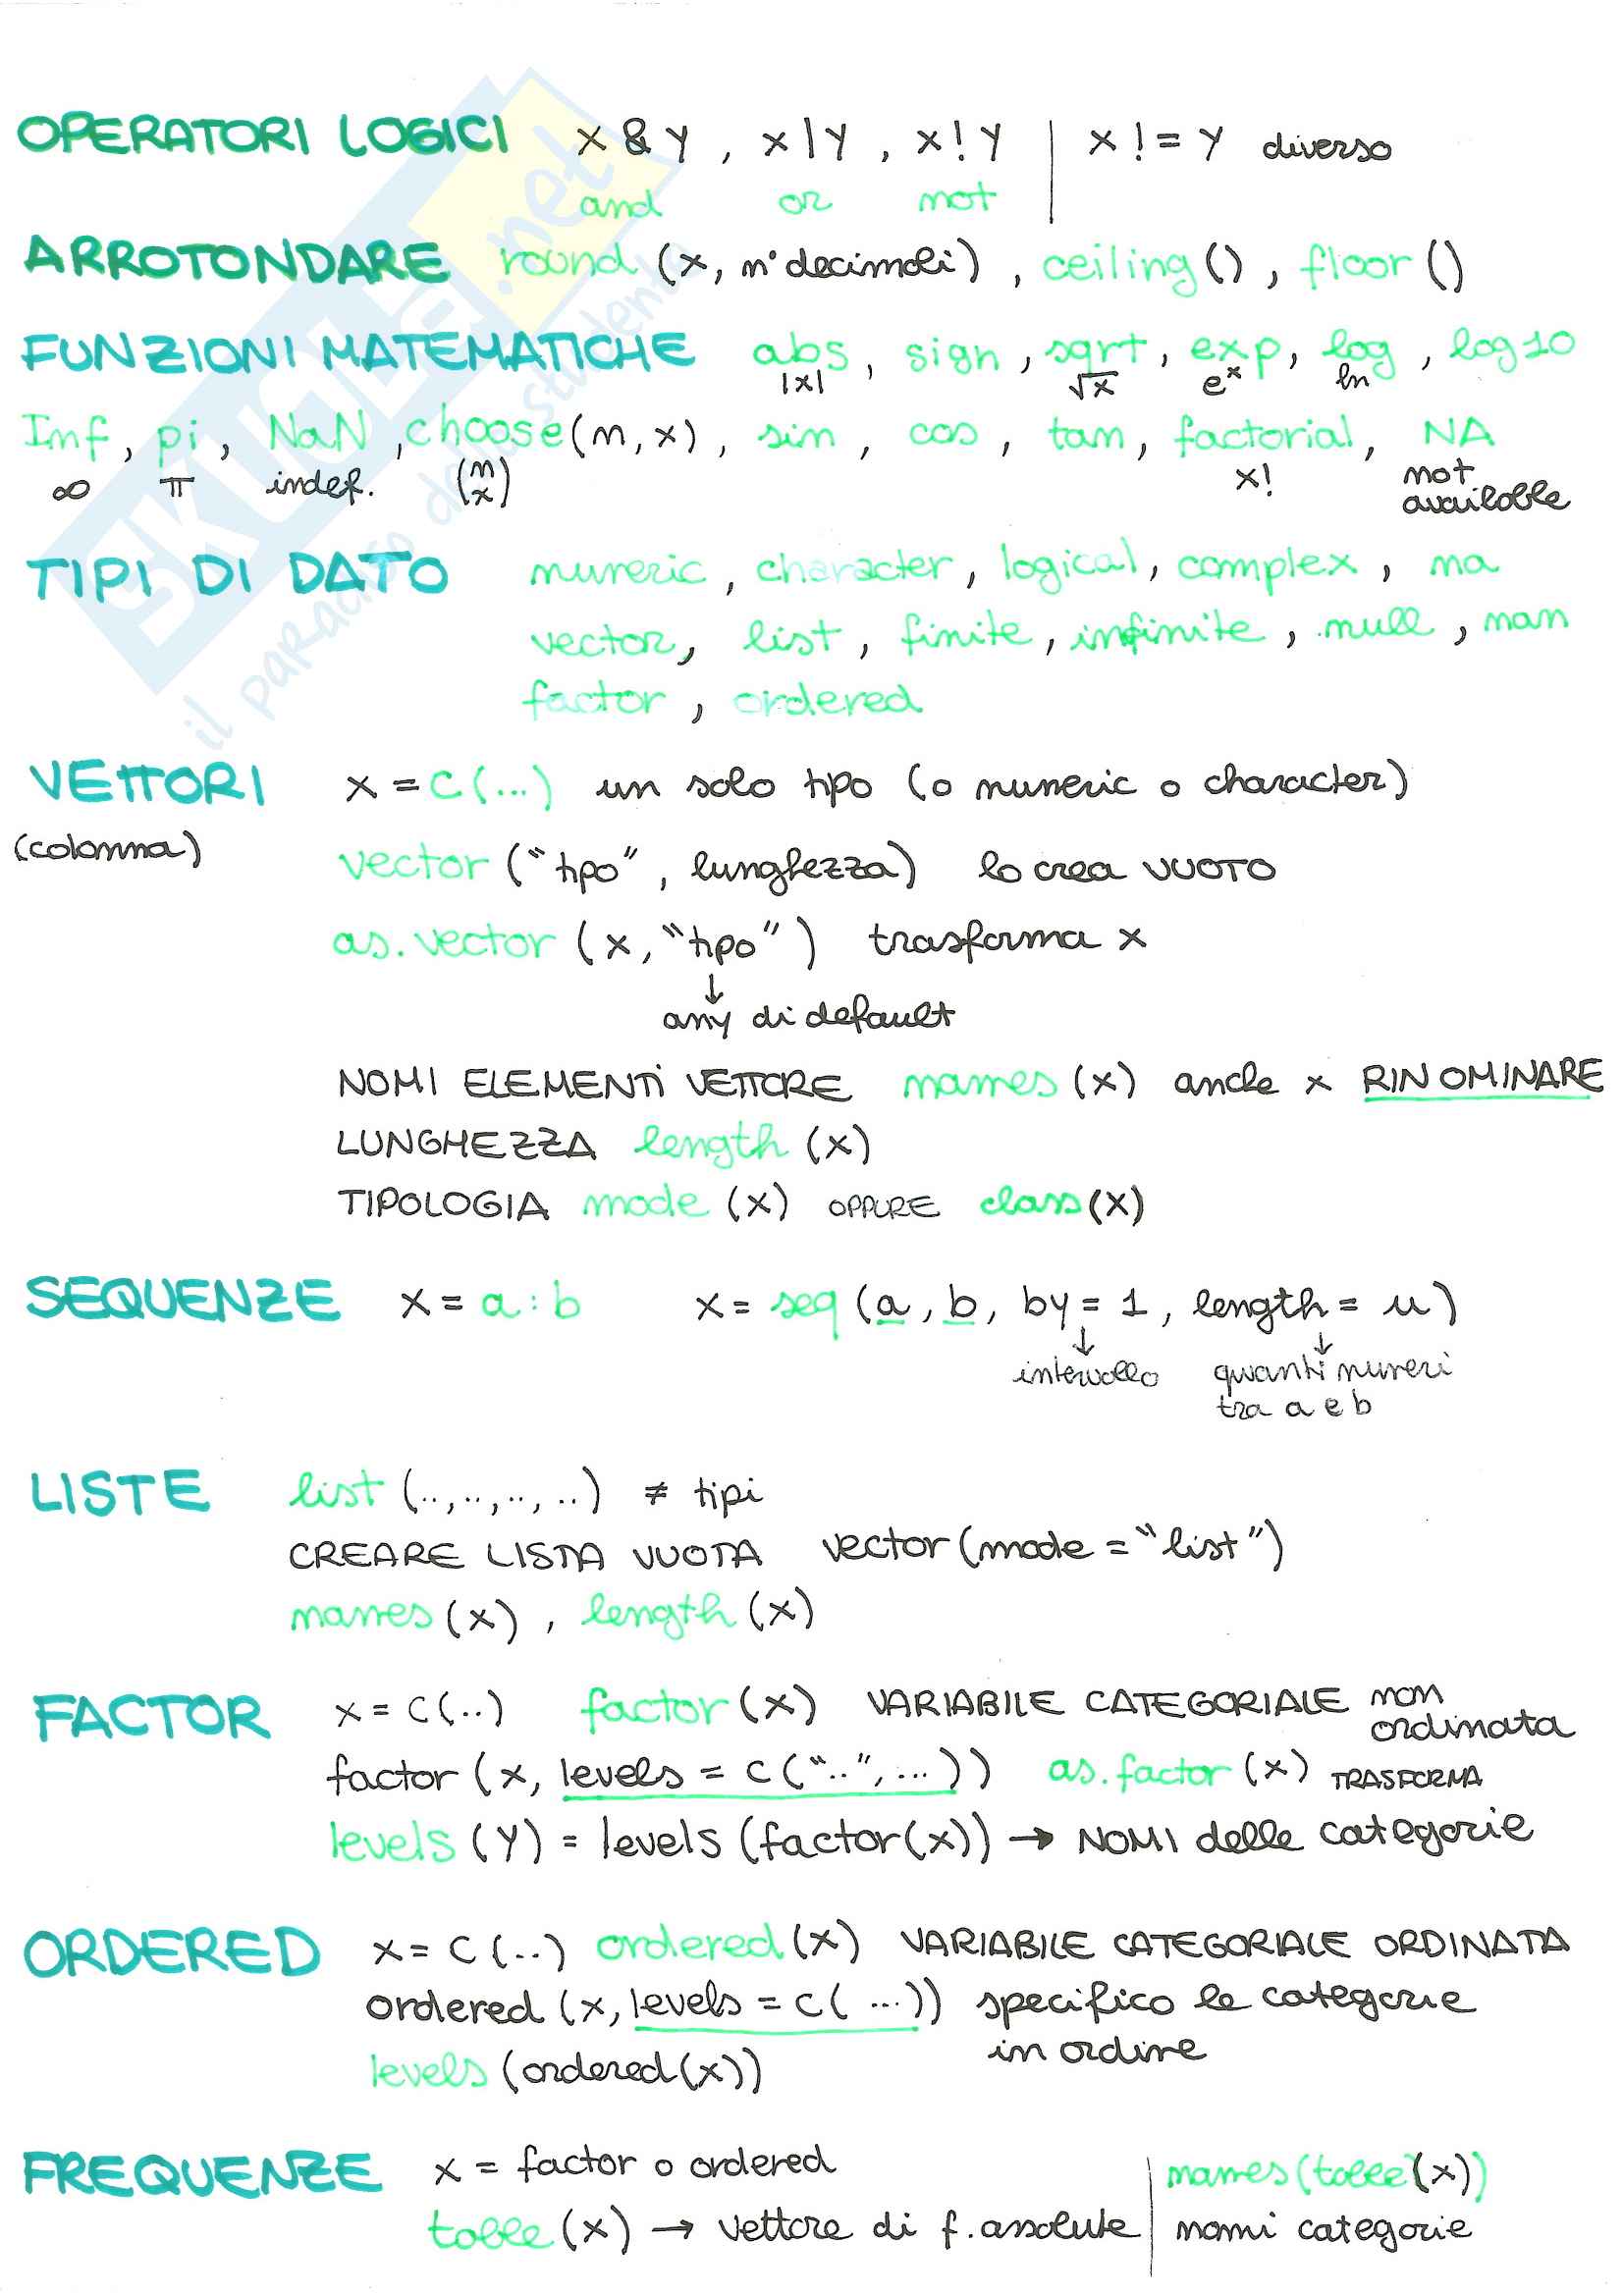 OPERATORI LOGICI x & y , x | y , x ! y | x != y diverso
and or not
ARROTONDARE round (x, n° decimali) , ceiling () , floor ()
FUNZIONI MATEMATICHE abs , sign , sqrt , exp , log , log10
|x| √x eˣ ln
Inf , pi , NaN , choose (n, x) , sin , cos , tan , factorial , NA
∞ π indef. (n x) x! not
available
TIPI DI DATO numeric , character , logical , complex , na
vector , list , finite , infinite , null , nan
factor , ordered
VETTORI x = c (...) un solo tipo (o numeric o character)
(colonna) vector ("tipo" , lunghezza) lo crea VUOTO
as.vector (x, "tipo") trasforma x
↓
any di default
NOMI ELEMENTI VETTORE names (x) anche x RINOMINARE
LUNGHEZZA length (x)
TIPOLOGIA mode (x) OPPURE class (x)
SEQUENZE x = a : b x = seq (a , b , by = 1 , length = u)
↓ ↓
intervallo quanti numeri
tra a e b
LISTE list (.., .., .., ..) ≠ tipi
CREARE LISTA VUOTA vector (mode = "list")
names (x) , length (x)
FACTOR x = c (..) factor (x) VARIABILE CATEGORIALE non
ordinata
factor (x, levels = c (".." , ...)) as.factor (x) TRASFORMA
levels (y) = levels (factor (x)) → NOMI delle categorie
ORDERED x = c (..) ordered (x) VARIABILE CATEGORIALE ORDINATA
ordered (x, levels = c ( ...)) specifico le categorie
in ordine
levels (ordered (x))
FREQUENZE x = factor o ordered | names (table (x))
table (x) → vettore di f. assolute | nomi categorie
SKUOLA.net
il paradiso dello studente